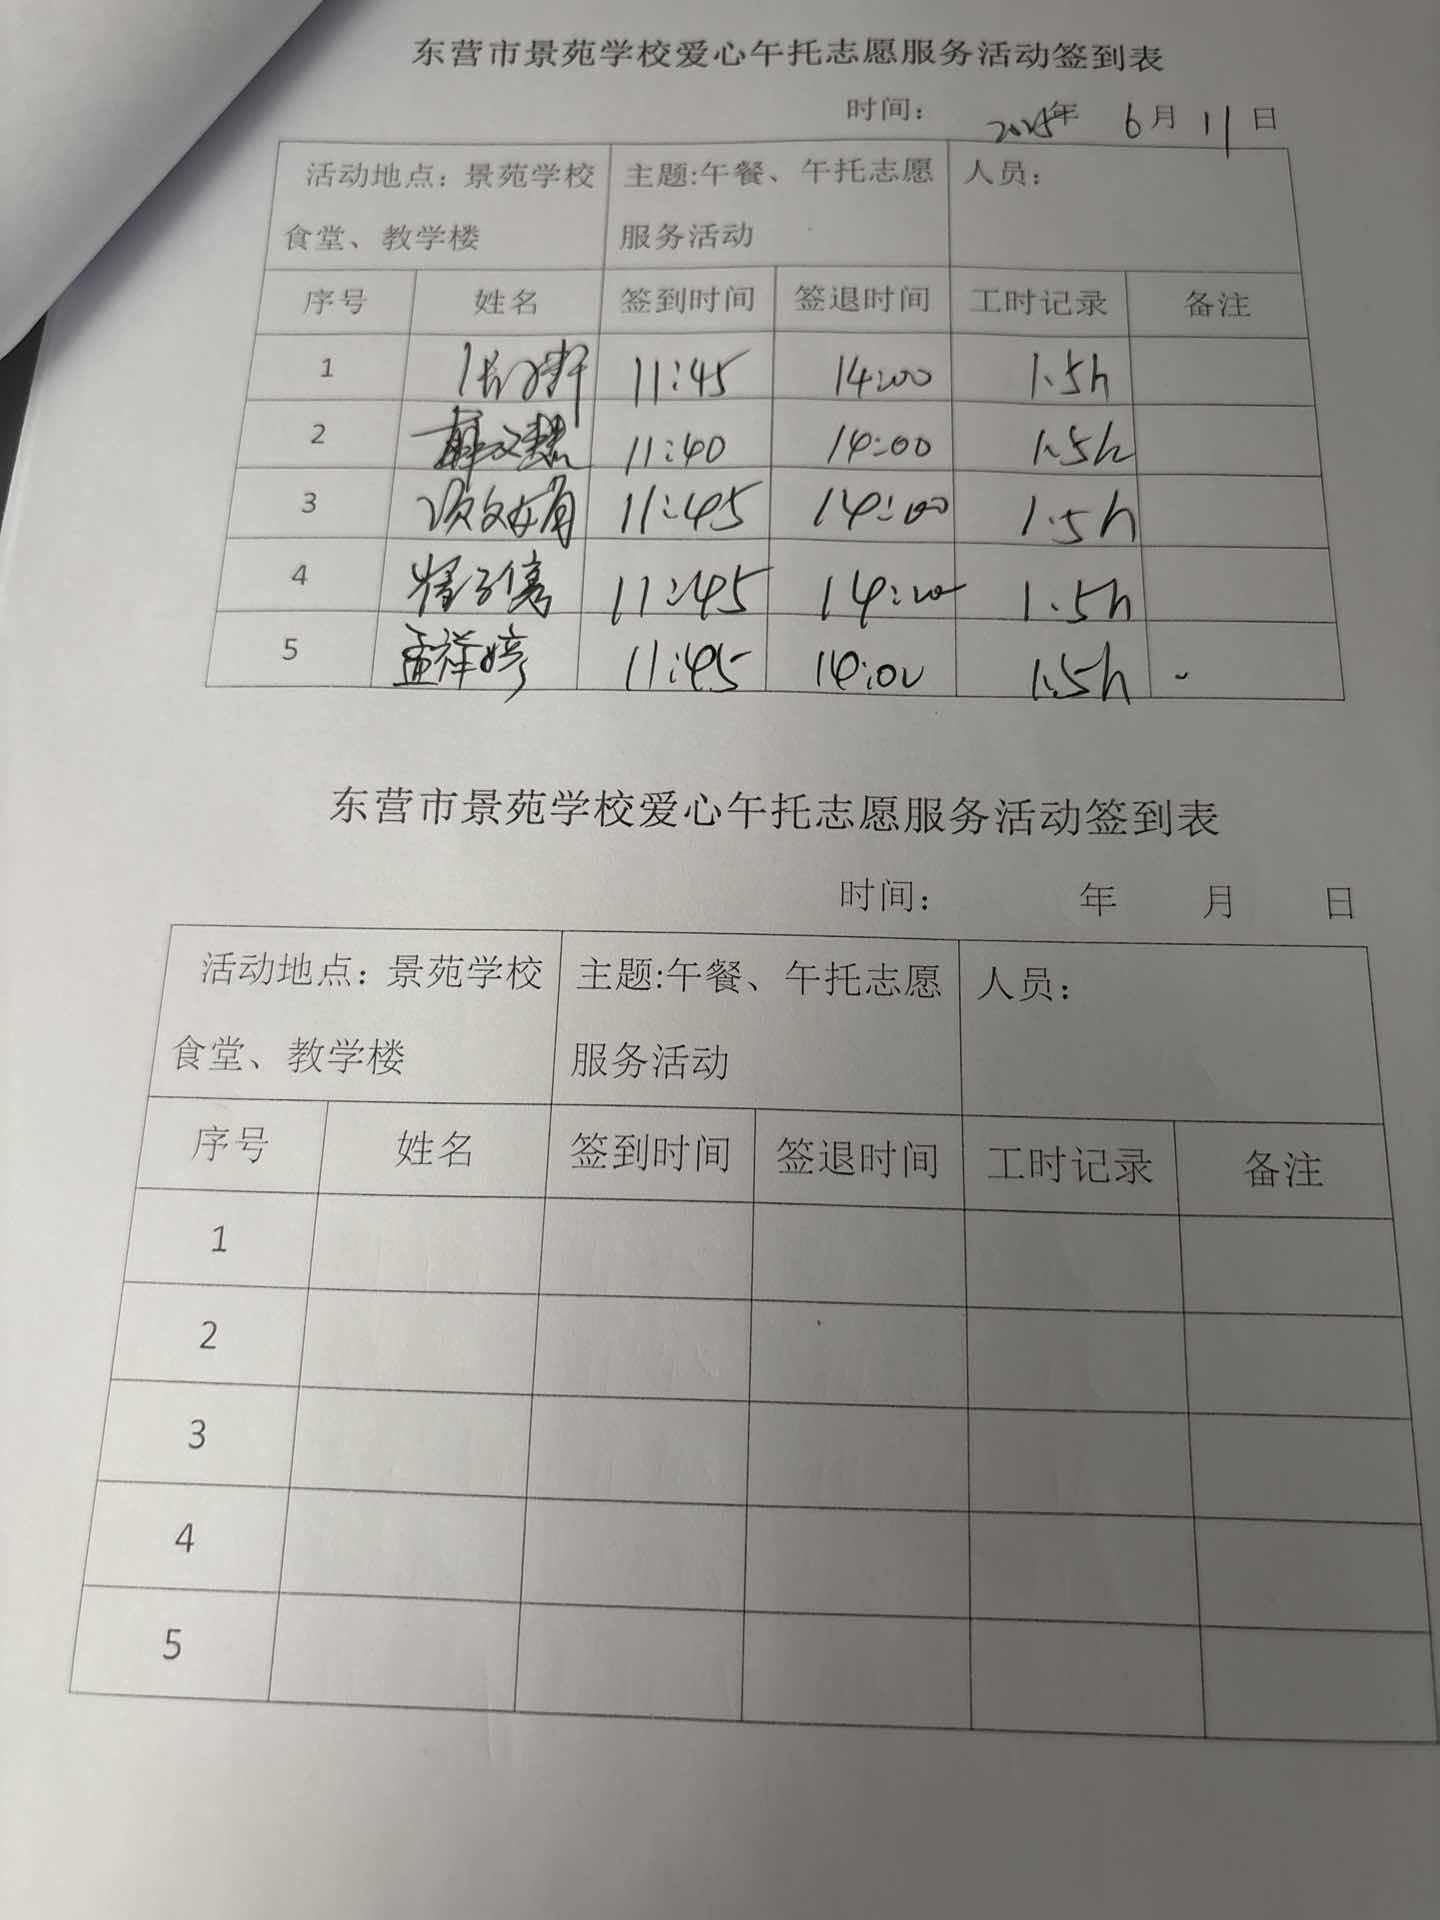 东营市景苑学校爱心午托志愿服务活动签到表
时间： 2025年 6月 11日
活动地点：景苑学校 主题:午餐、午托志愿 人员：
食堂、教学楼 服务活动
序号 姓名 签到时间 签退时间 工时记录 备注
1 11:45 14:00 1.5h
2 11:40 14:00 1.5h
3 11:45 14:00 1.5h
4 11:45 1.5h
5 孟祥婷 11:45 14:00 1.5h
东营市景苑学校爱心午托志愿服务活动签到表
时间： 年 月 日
活动地点：景苑学校 主题:午餐、午托志愿 人员：
食堂、教学楼 服务活动
序号 姓名 签到时间 签退时间 工时记录 备注
1
2
3
4
5